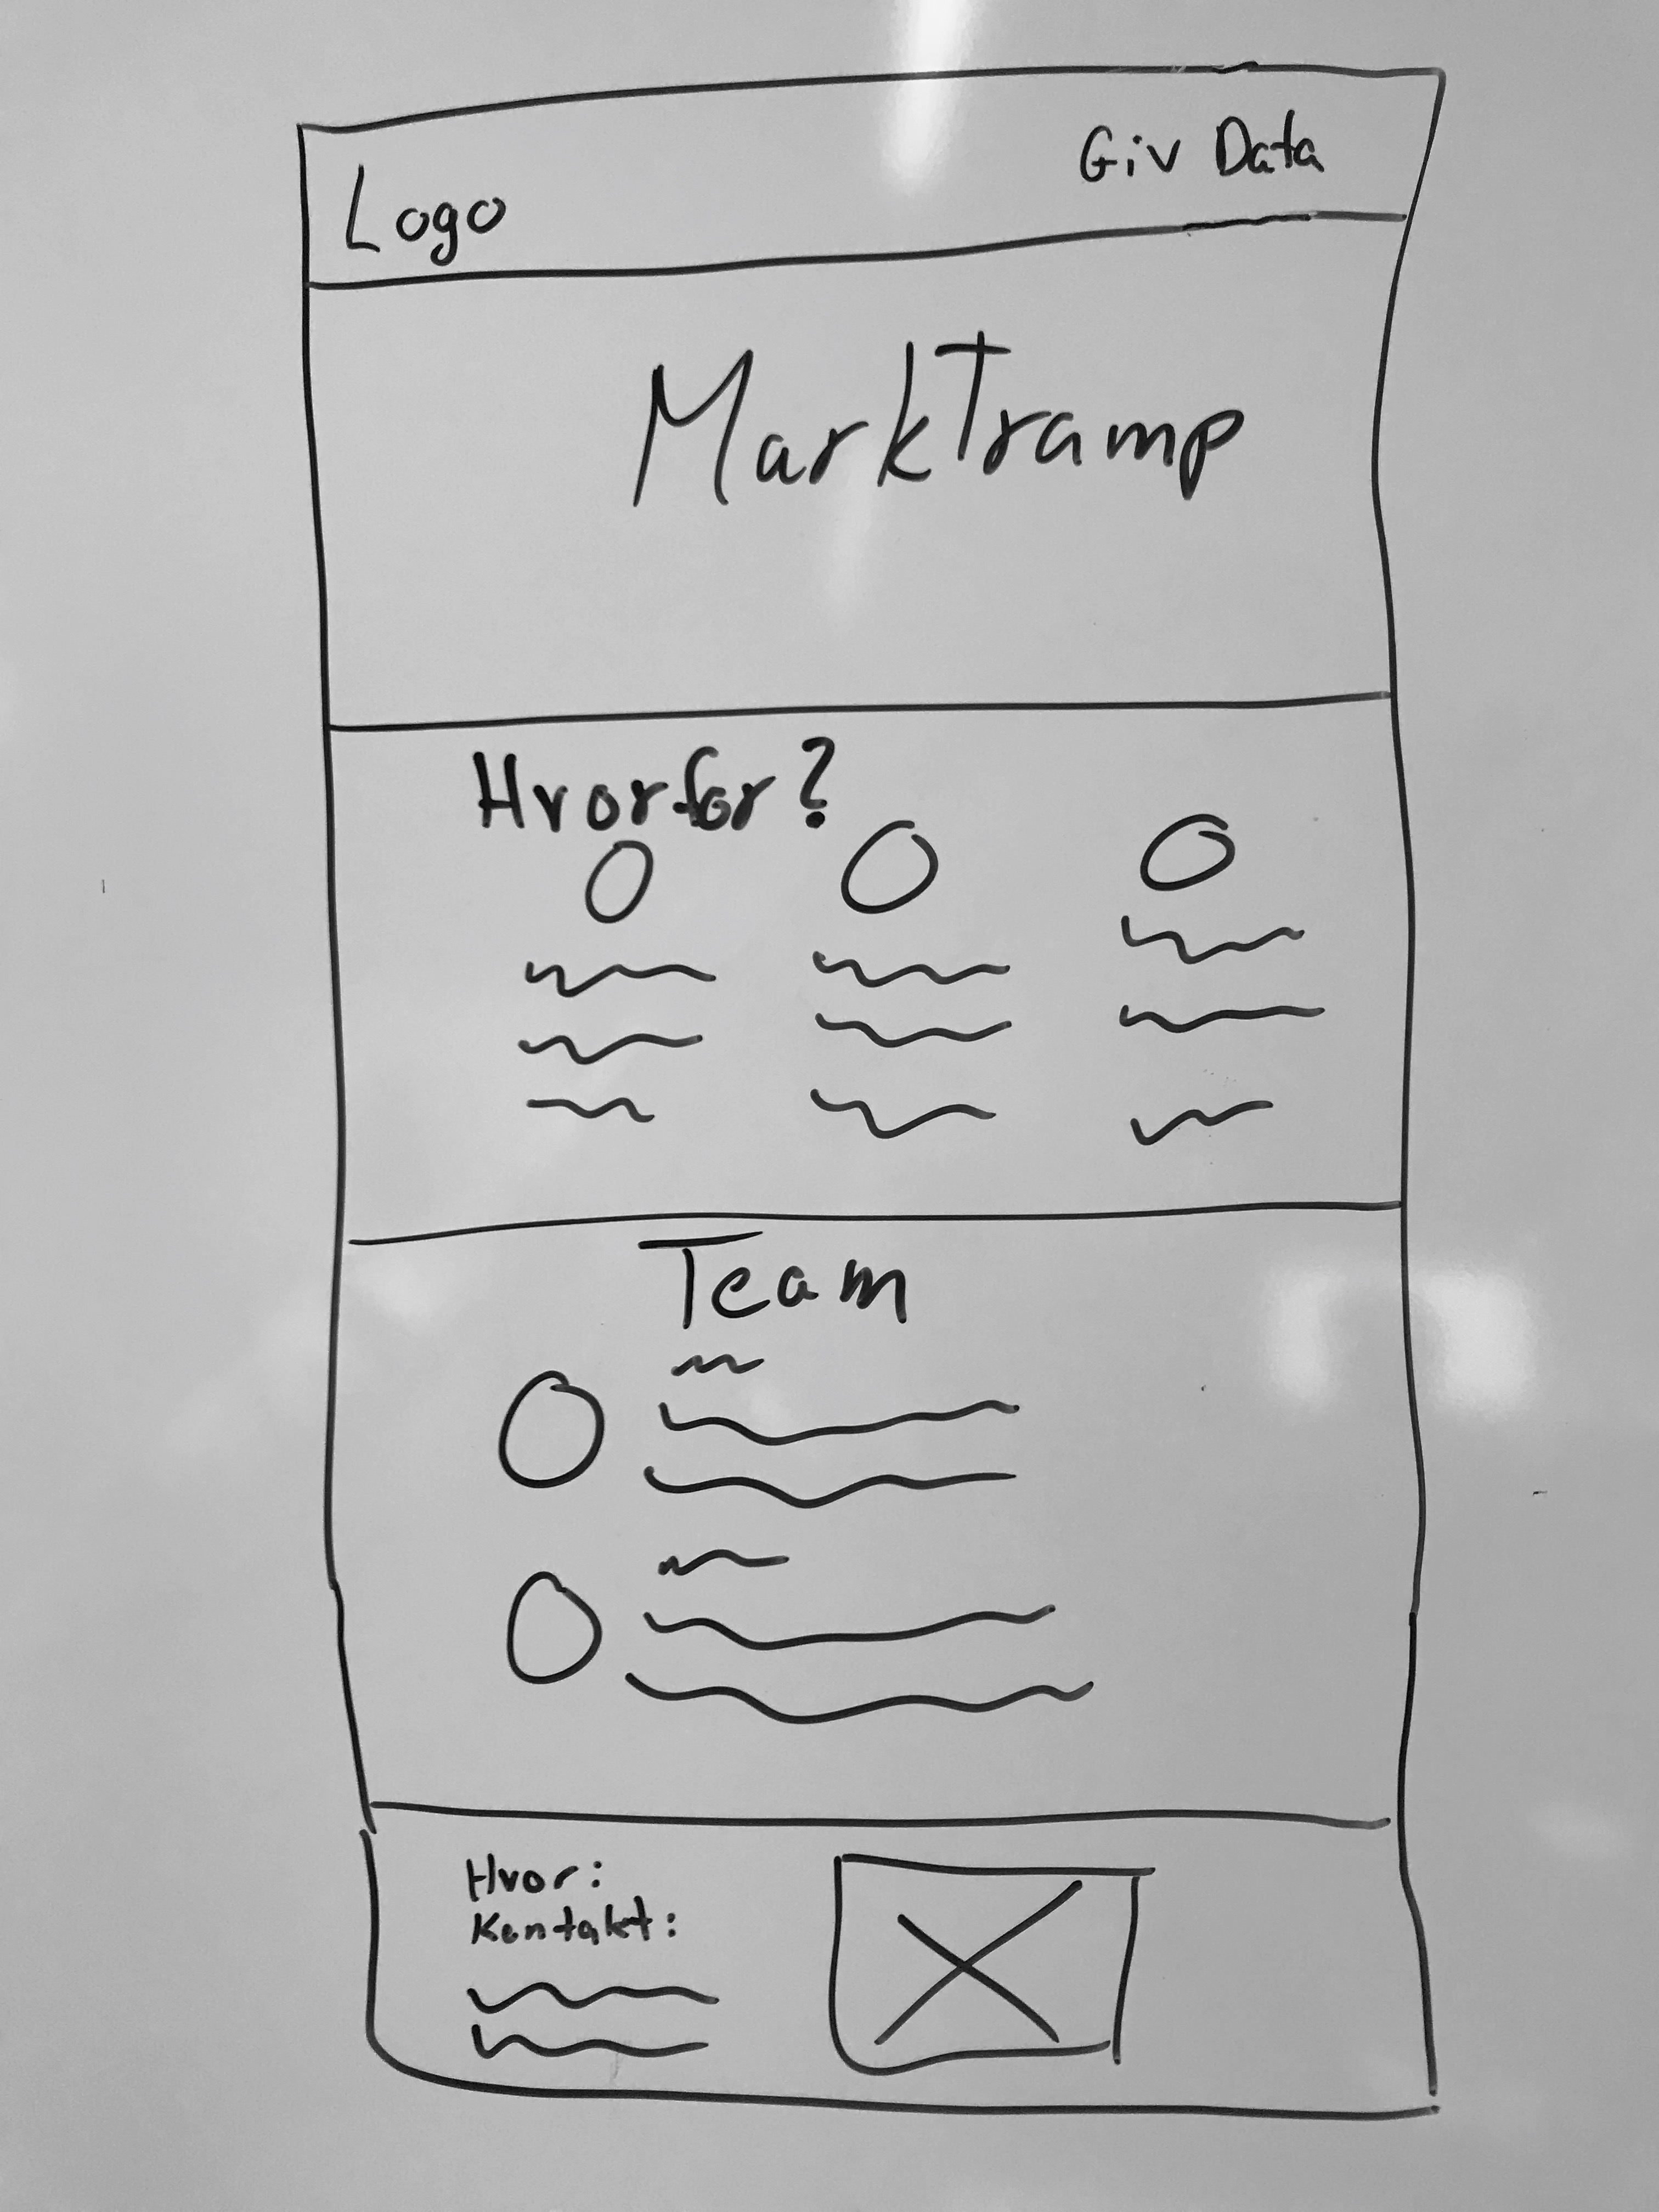 Logo
Giv Data
MarkTramp
Hvorfor?
Team
Hvor:
Kontakt: